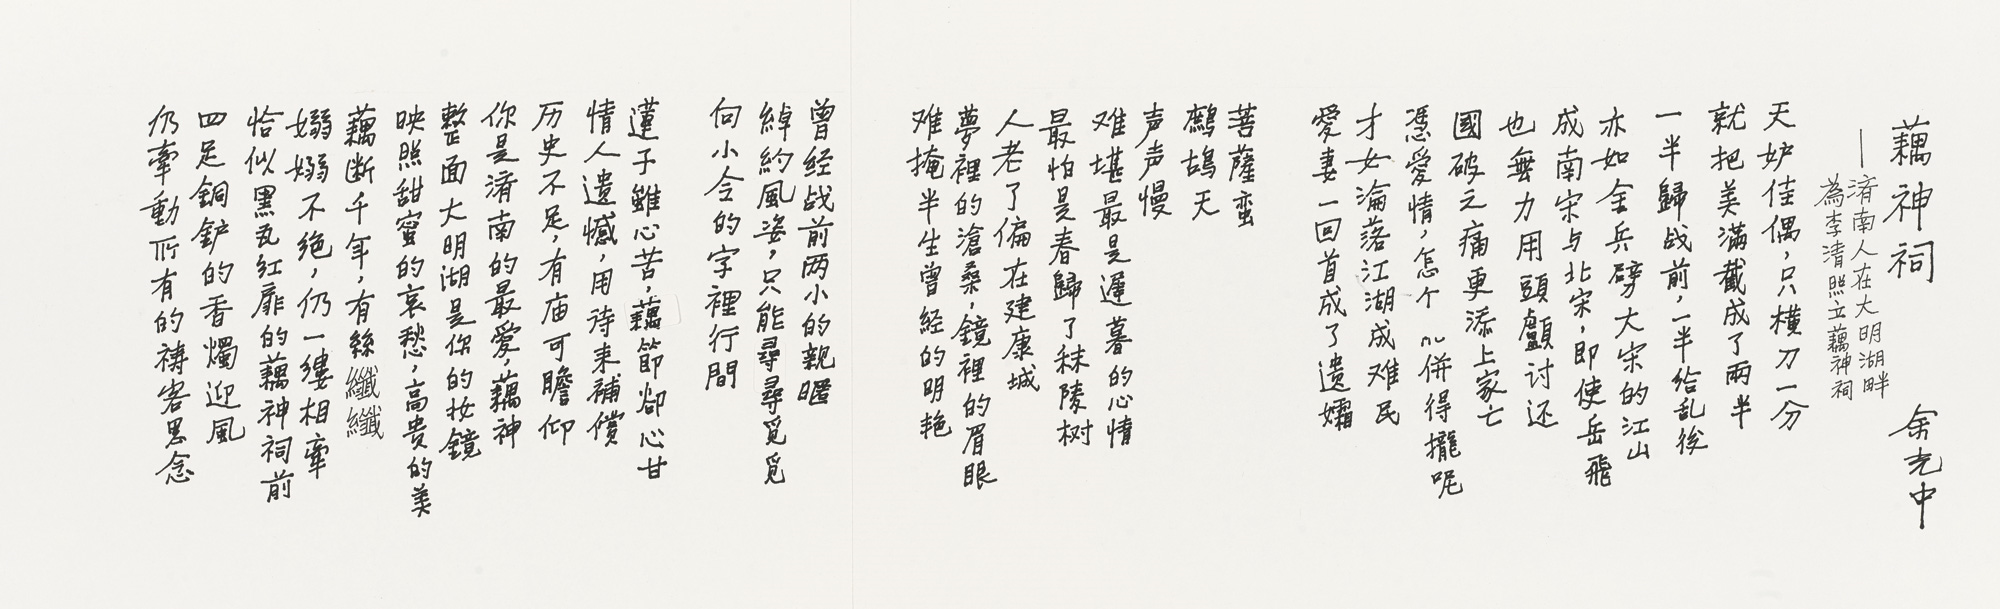 藕神祠
——濟南人在大明湖畔
為李清照立藕神祠
余光中
天妒佳偶，只橫刀一分
就把美滿截成了兩半
一半歸战前，一半给乱後
亦如金兵劈大宋的江山
成南宋与北宋，即使岳飛
也無力用頭顱讨还
國破之痛更添上家亡
憑愛情，怎个ㄦ併得攏呢
才女淪落江湖成难民
愛妻一回首成了遗孀
菩薩蛮
鷓鴣天
声声慢
难堪最是遲暮的心情
最怕是春歸了秣陵树
人老了偏在建康城
夢裡的滄桑，鏡裡的眉眼
难掩半生曾经的明艳
曾经战前两小的親暱
綽約風姿，只能尋尋覓覓
向小令的字裡行間
蓮子雖心苦，藕節卻心甘
情人遺憾，用诗来補償
历史不足，有庙可瞻仰
你是济南的最愛，藕神
整面大明湖是你的妝鏡
映照甜蜜的哀愁，高贵的美
藕断千年，有絲纖纖
嫋嫋不绝，仍一缕相牽
恰似黑瓦红扉的藕神祠前
四足銅铲的香燭迎風
仍牽動所有的祷客思念